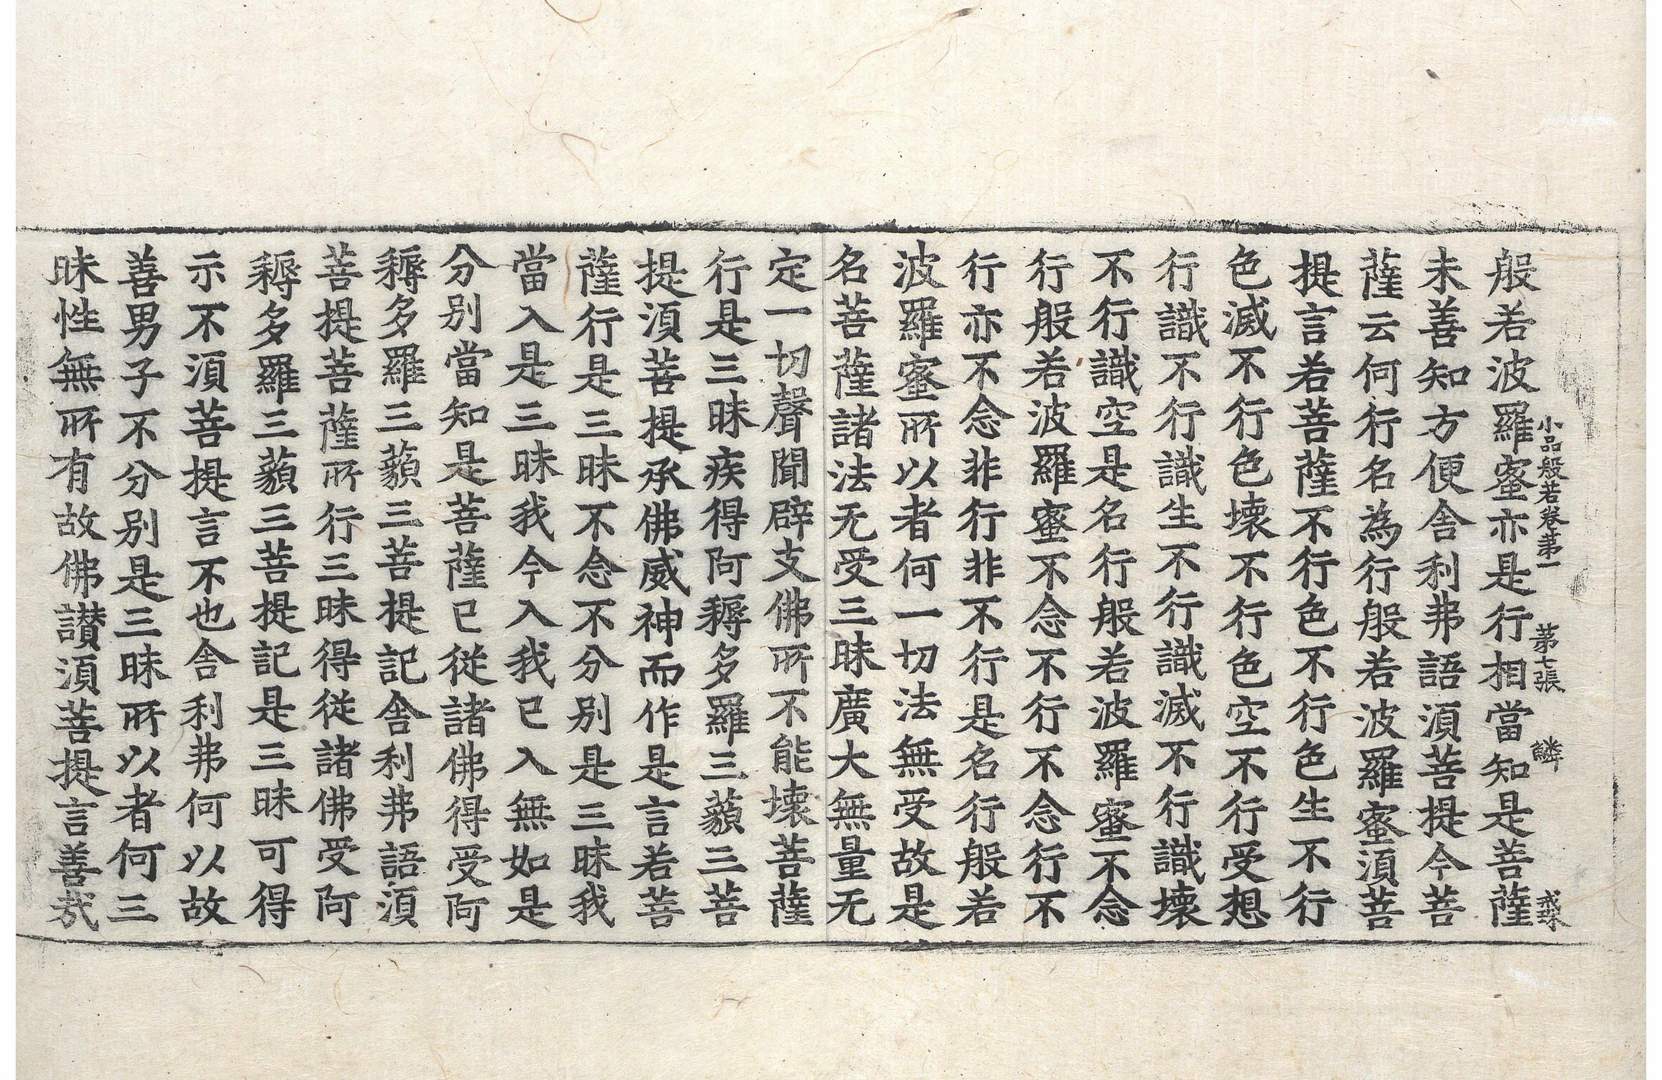 小品般若卷第一 第七張 鱗
般若波羅蜜亦是行相當知是菩薩
未善知方便舍利弗語湏菩提今菩
薩云何行名為行般若波羅蜜湏菩
提言若菩薩不行色不行色生不行
色滅不行色壞不行色空不行受想
行識不行識生不行識滅不行識壞
不行識空是名行般若波羅蜜不念
行般若波羅蜜不念不行不念行不
行亦不念非行非不行是名行般若
波羅蜜所以者何一切法無受故是
名菩薩諸法无受三昧廣大無量无
定一切聲聞辟支佛所不能壞菩薩
行是三昧疾得阿耨多羅三藐三菩
提湏菩提承佛威神而作是言若菩
薩行是三昧不念不分別是三昧我
當入是三昧我今入我已入無如是
分別當知是菩薩已從諸佛得受阿
耨多羅三藐三菩提記舍利弗語湏
菩提菩薩所行三昧得從諸佛受阿
耨多羅三藐三菩提記是三昧可得
示不湏菩提言不也舍利弗何以故
善男子不分別是三昧所以者何三
昧性無所有故佛讃湏菩提言善哉